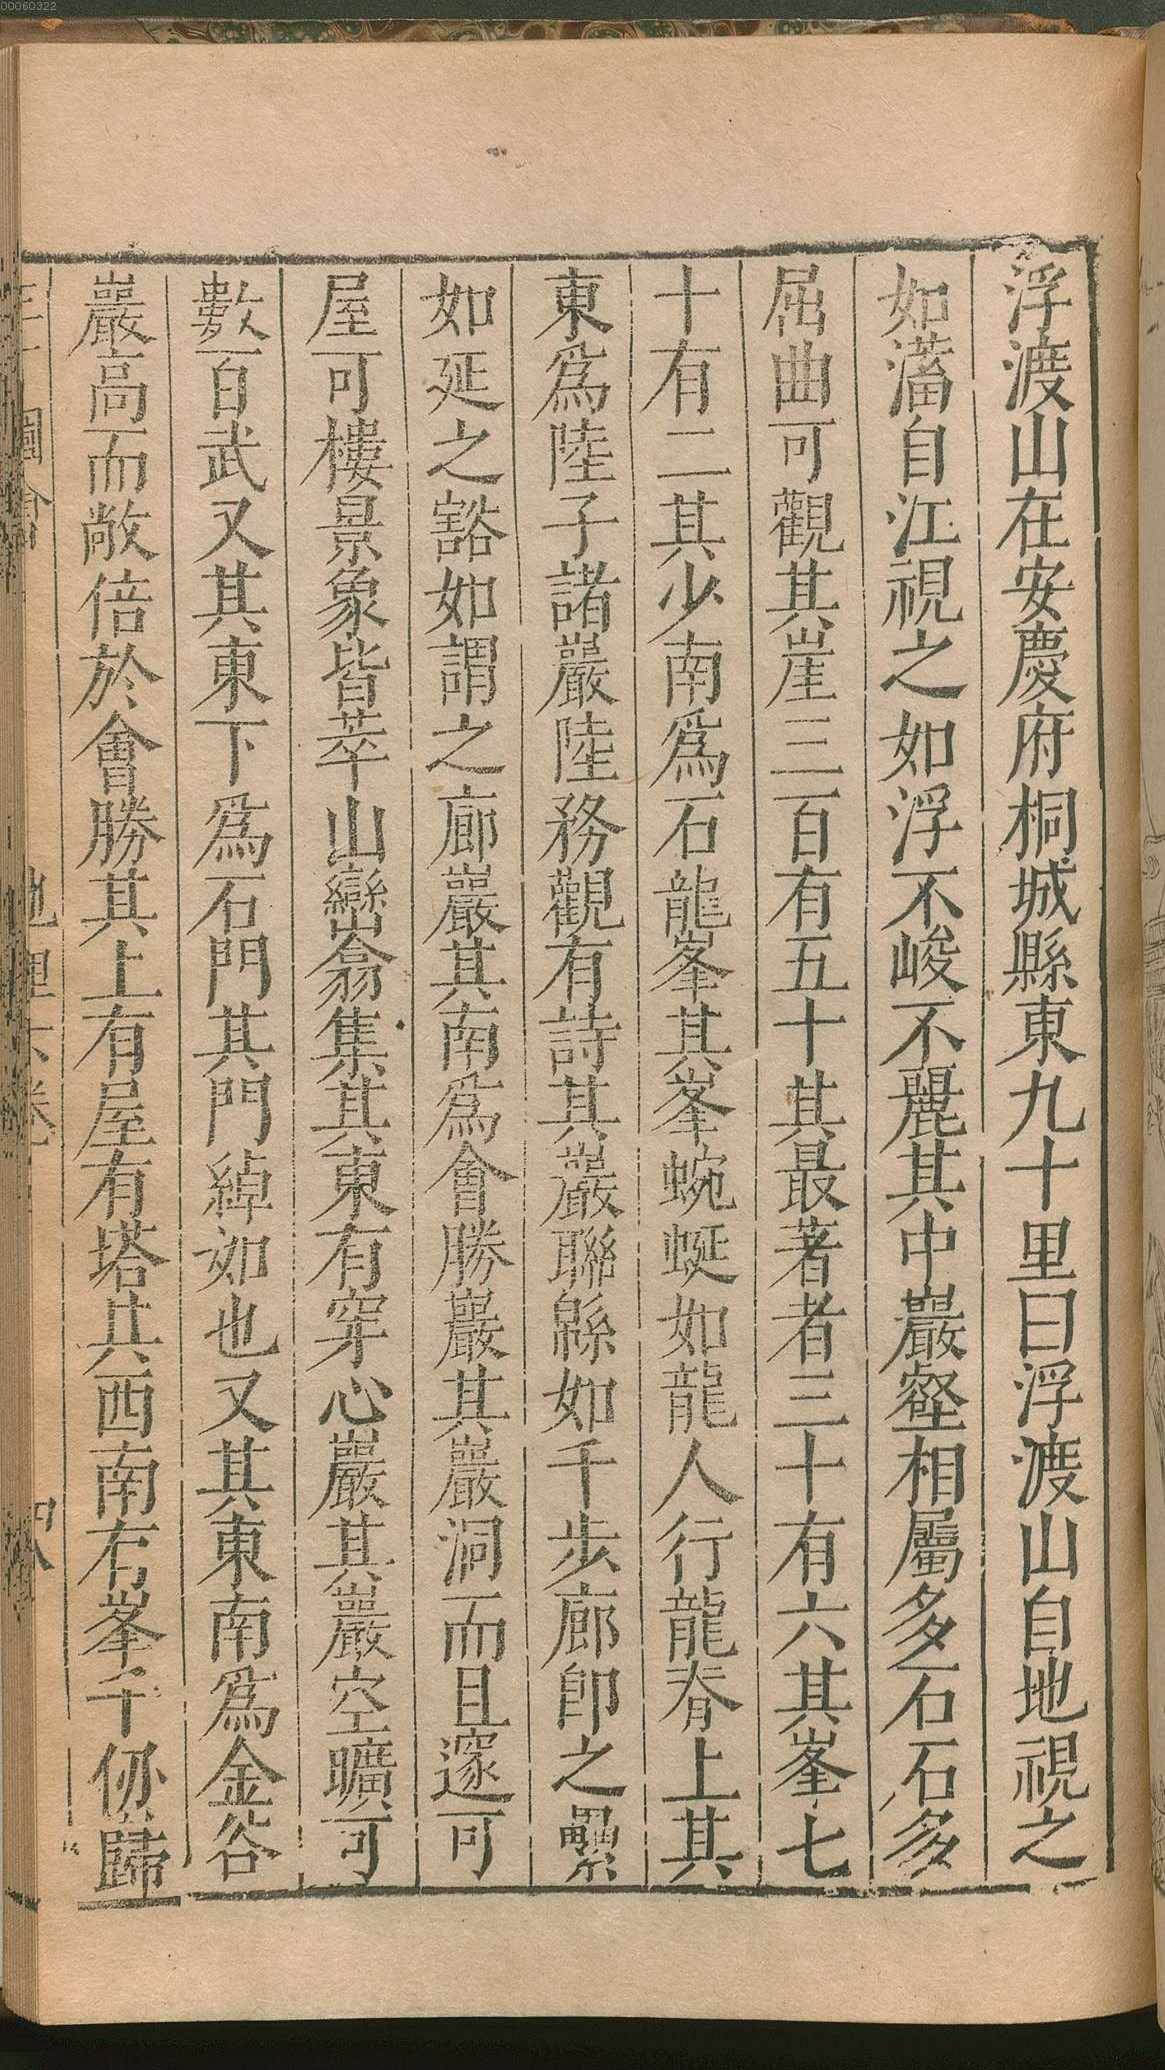 00060322
浮渡山在安慶府桐城縣東九十里曰浮渡山自地視之
如瀋自江視之如浮不峻不麗其中巖壑相屬多石石多
屈曲可觀其崖三百有五十其最著者三十有六其峯七
十有二其少南爲石龍峯其峯蜿蜒如龍人行龍脊上其
東爲陸子諸巖陸務觀有詩其巖聯緜如千步廊即之纍
如延之豁如謂之廊巖其南爲會勝巖其巖洞而且邃可
屋可樓景象皆萃山巒翕集其東有穿心巖其巖空曠可
數百武又其東下爲石門其門綽如也又其東南爲金谷
巖高而敞倍於會勝其上有屋有塔其西南右峯千仞歸
三才圖會 地理六卷 四八